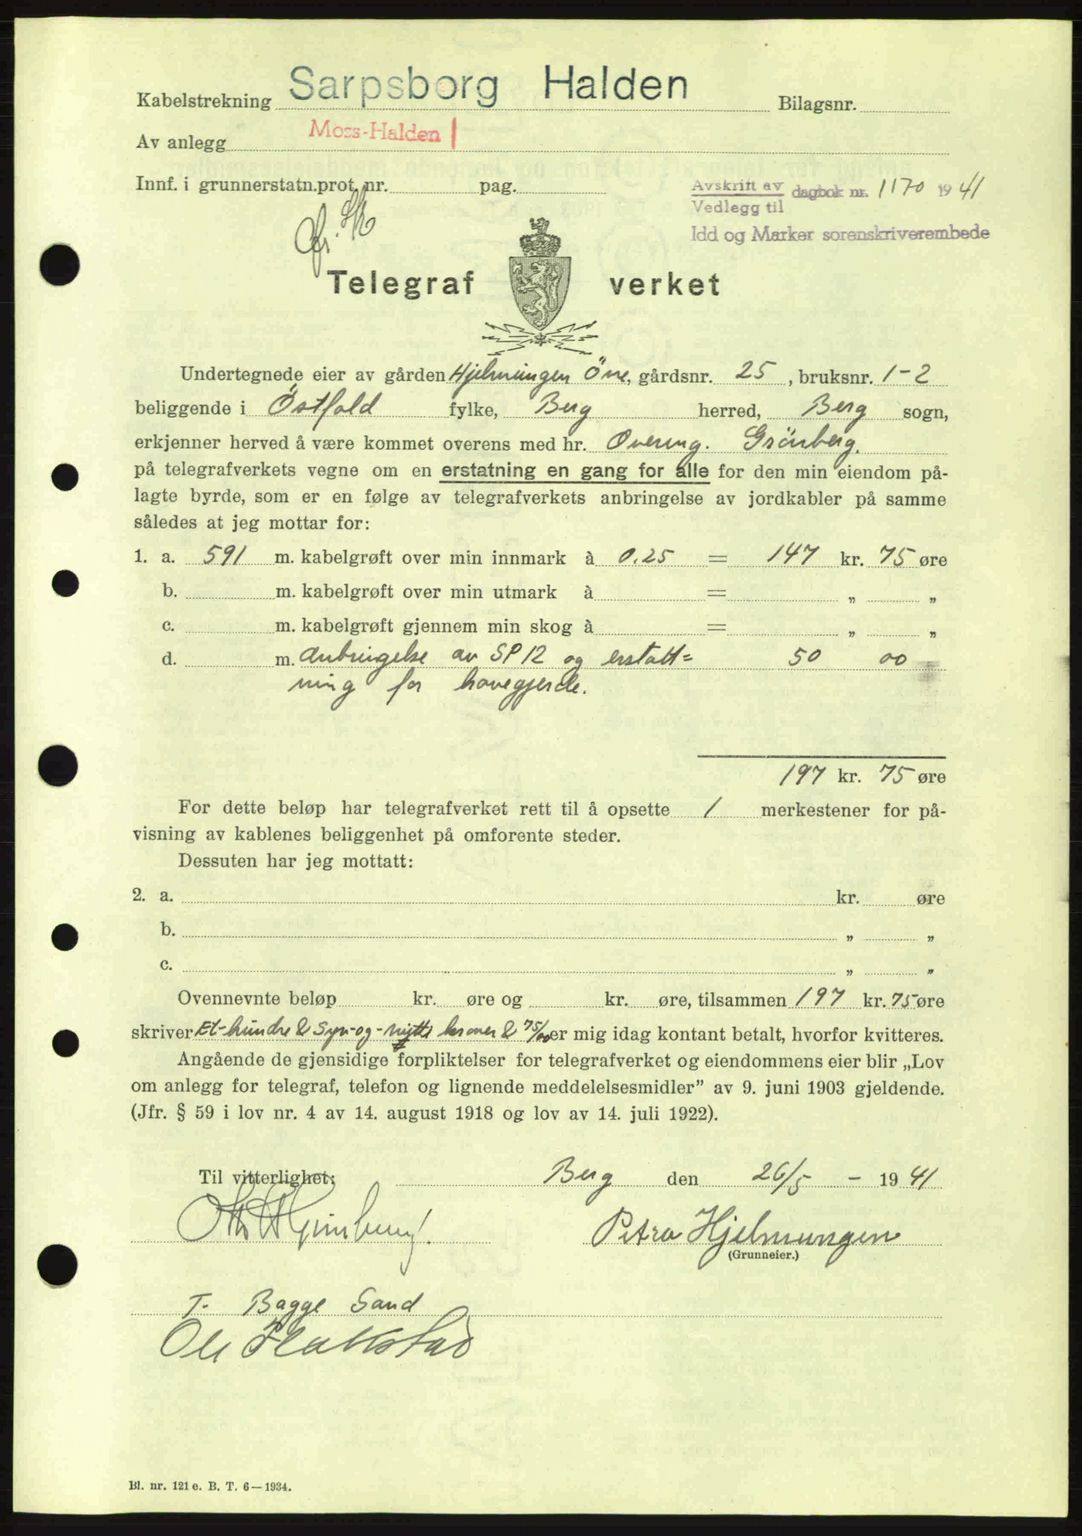 Kabelstrekning Sarpsborg Halden Bilagsnr.
Av anlegg Moss-Halden
Innf. i grunnerstatn.prot. nr. pag.
Avskrift av dagbok nr. 1170 1941
Vedlegg til
Idd og Marker sorenskriverembede
Telegraf verket
Undertegnede eier av gården Hjelmungen Övre, gårdsnr. 25, bruksnr. 1-2
beliggende i Östfold fylke, Berg herred, Berg sogn,
erkjenner herved å være kommet overens med hr. Overing. Grönberg.
på telegrafverkets vegne om en erstatning en gang for alle for den min eiendom på-
lagte byrde, som er en følge av telegrafverkets anbringelse av jordkabler på samme
således at jeg mottar for:
1. a. 591 m. kabelgrøft over min innmark à 0.25 = 147 kr. 75 øre
b. m. kabelgrøft over min utmark à = „ „
c. m. kabelgrøft gjennem min skog à = „ „
d. m. Anbringelse av SP 12 og erstatt= 50 00
ning for havegjerde.
197 kr. 75 øre
For dette beløp har telegrafverket rett til å opsette 1 merkestener for på-
visning av kablenes beliggenhet på omforente steder.
Dessuten har jeg mottatt:
2. a. kr. øre
b. „ „
c. „ „
Ovennevnte beløp kr. øre og kr. øre, tilsammen 197 kr. 75 øre
skriver Et-hundre & Syv-og-nitti kroner & 75/00 er mig idag kontant betalt, hvorfor kvitteres.
Angående de gjensidige forpliktelser for telegrafverket og eiendommens eier blir „Lov
om anlegg for telegraf, telefon og lignende meddelelsesmidler” av 9. juni 1903 gjeldende.
(Jfr. § 59 i lov nr. 4 av 14. august 1918 og lov av 14. juli 1922).
Til vitterlighet:
Berg den 26/5 - 1941
Petra Hjelmungen
(Grunneier.)
T. Bagge Sand
Bl. nr. 121 e. B. T. 6—1934.